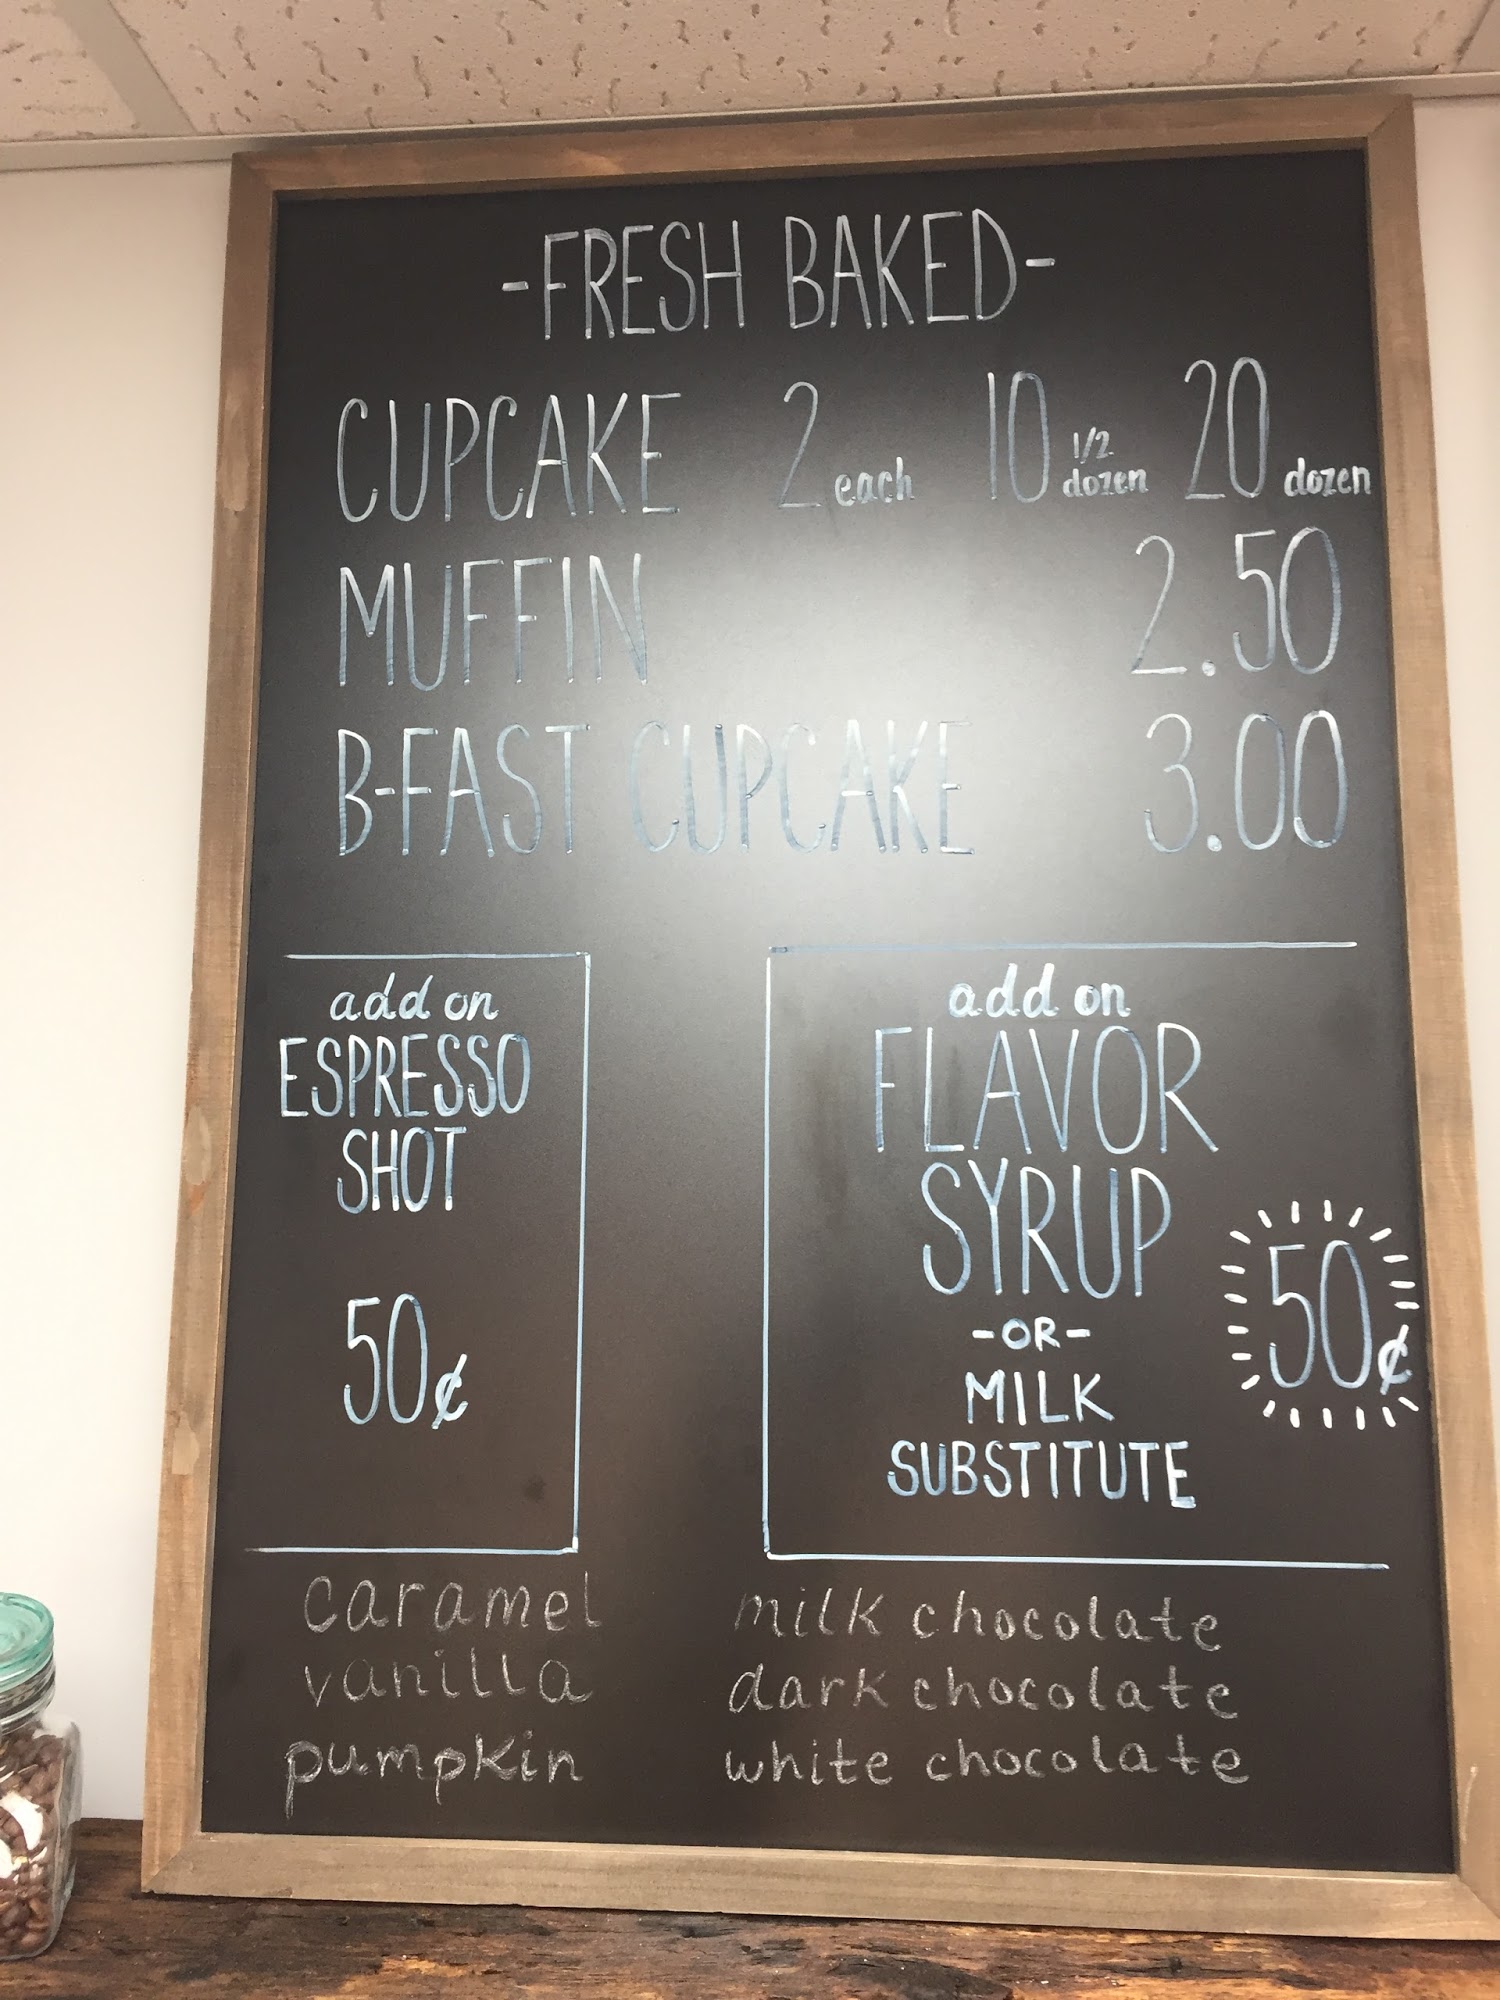 -FRESH BAKED-
CUPCAKE 2 each 10 1/2 dozen 20 dozen
MUFFIN 2.50
B-FAST CUPCAKE 3.00
add on
ESPRESSO
SHOT
50¢
add on
FLAVOR
SYRUP
-OR-
MILK
SUBSTITUTE
50¢
caramel
vanilla
pumpkin
milk chocolate
dark chocolate
white chocolate